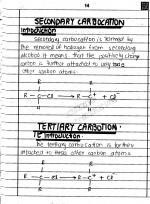 14
SECONDARY CARBOCATION
Introduction
Secondary carbocation is formed by
the removal of halogen from secondary
alcohol it means that the positively charge
carbon is further attached to very two
other carbon atoms.
H H
R — C — Cl → R — C +
R R
TERTIARY CARBOTION.
Introduction
The tertiary carbocation is further
attached to three other carbon atoms
R R
R — C — Cl → R — C +
R R